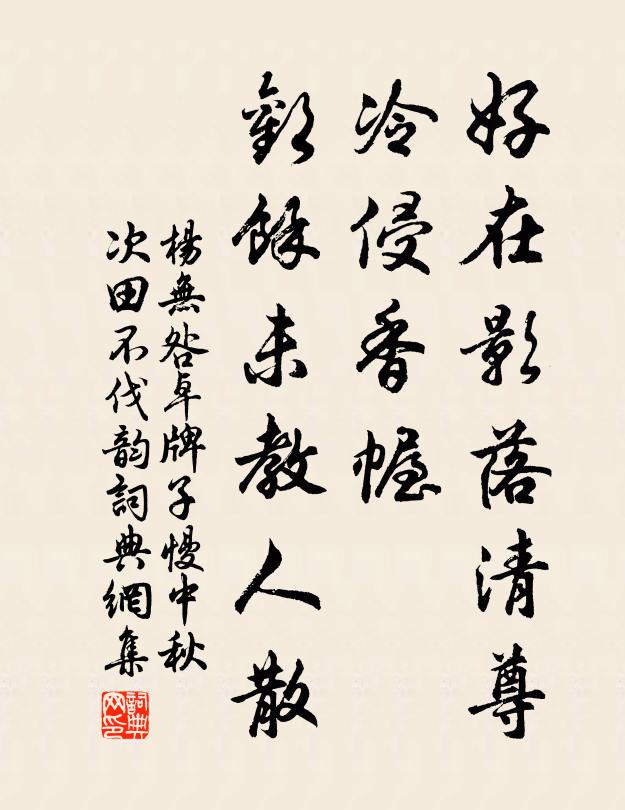 好在影落清尊
冷侵香幄
歡餘未教人散
楊無咎卓牌子慢中秋
次田不伐韵詞典網集
詞典网印